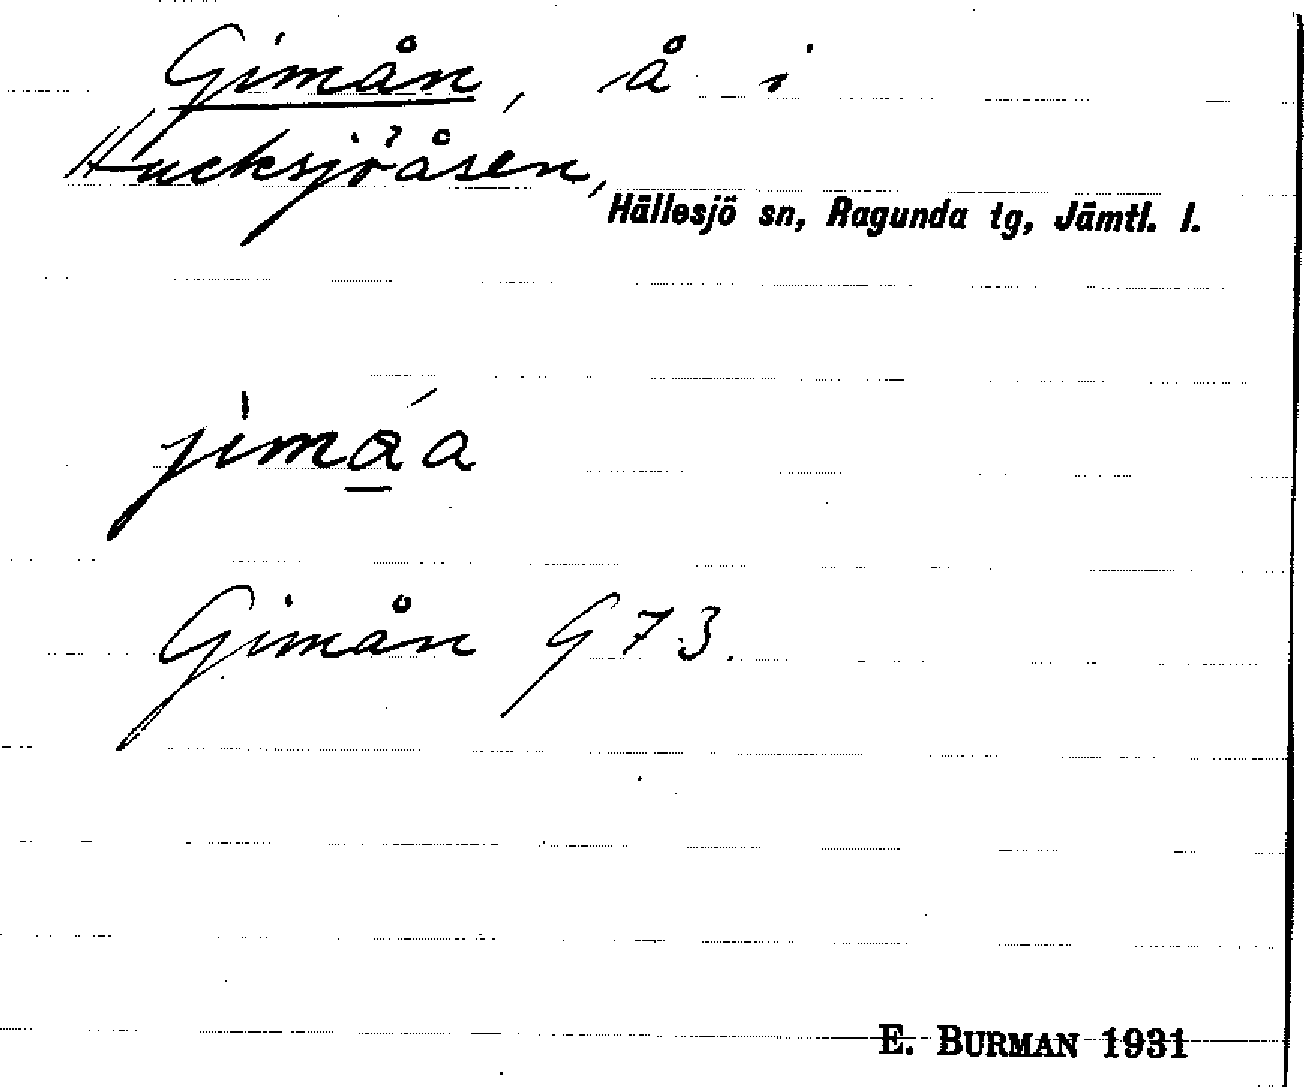 Gimån, å i
Hucksjöåsen,
Hällesjö sn, Ragunda tg, Jämtl. l.
jimá̲a
Gimån G 73.
E. BURMAN 1931